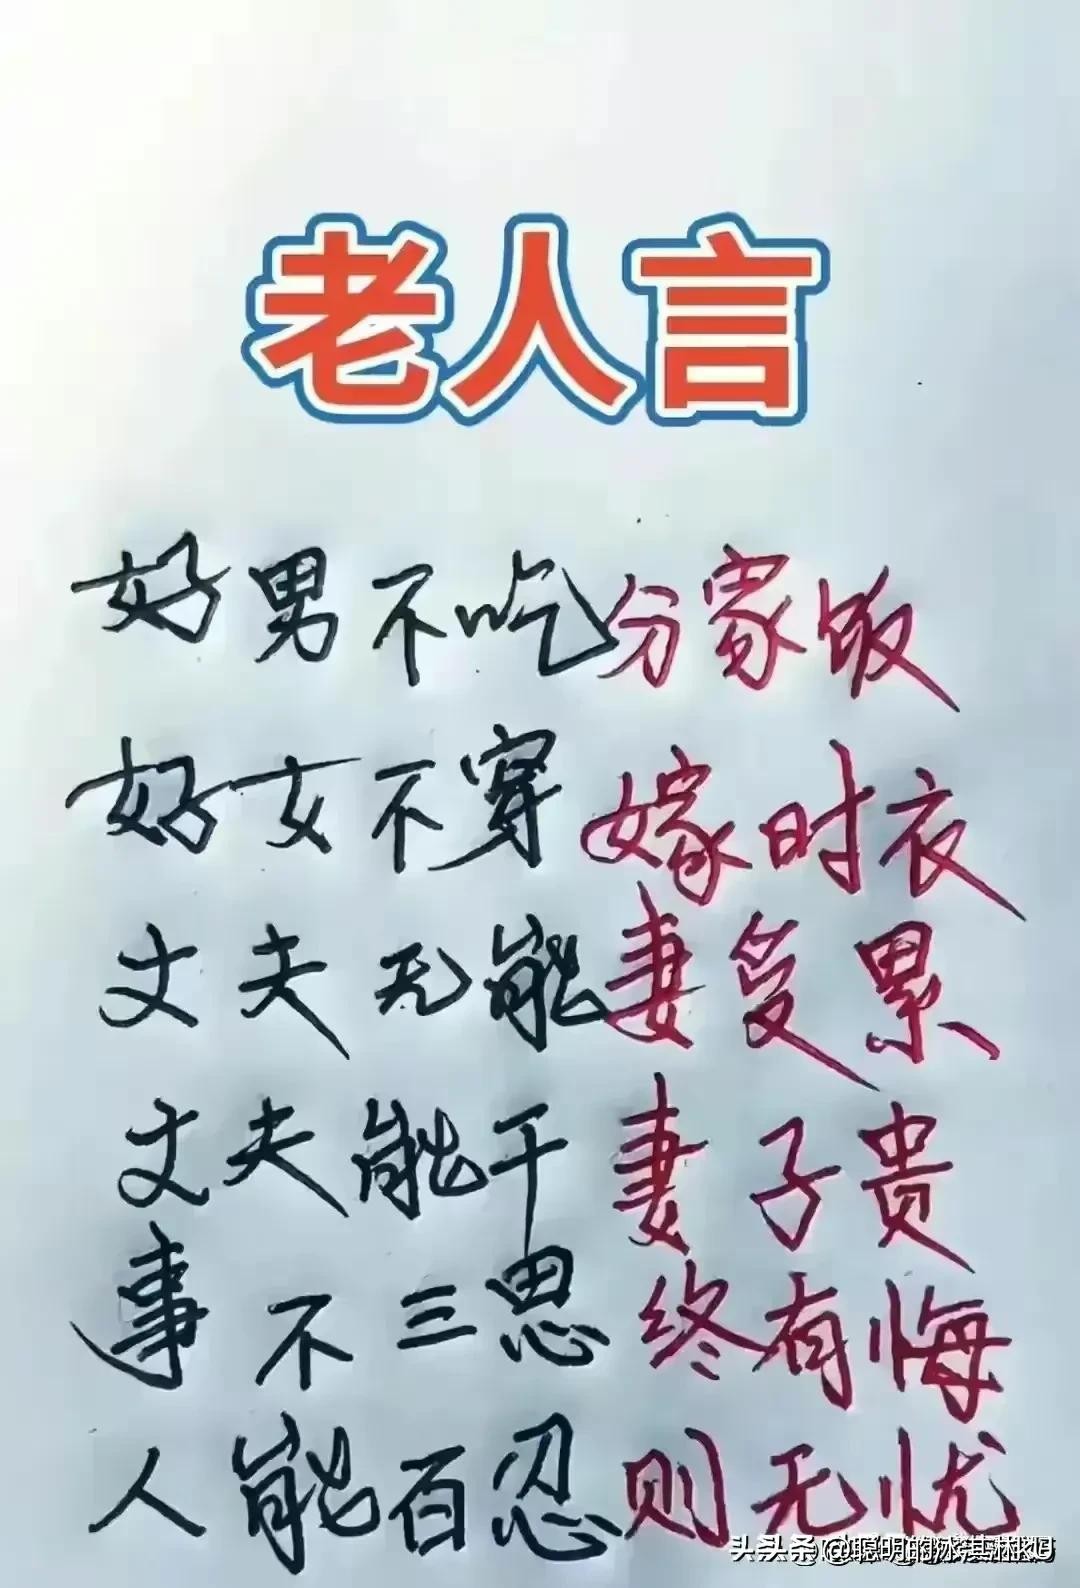 老人言
好男不吃分家饭
好女不穿嫁时衣
丈夫无能妻受累
丈夫能干妻子贵
事不三思终有悔
人能百忍则无忧
头条@聪明的冰淇淋KU